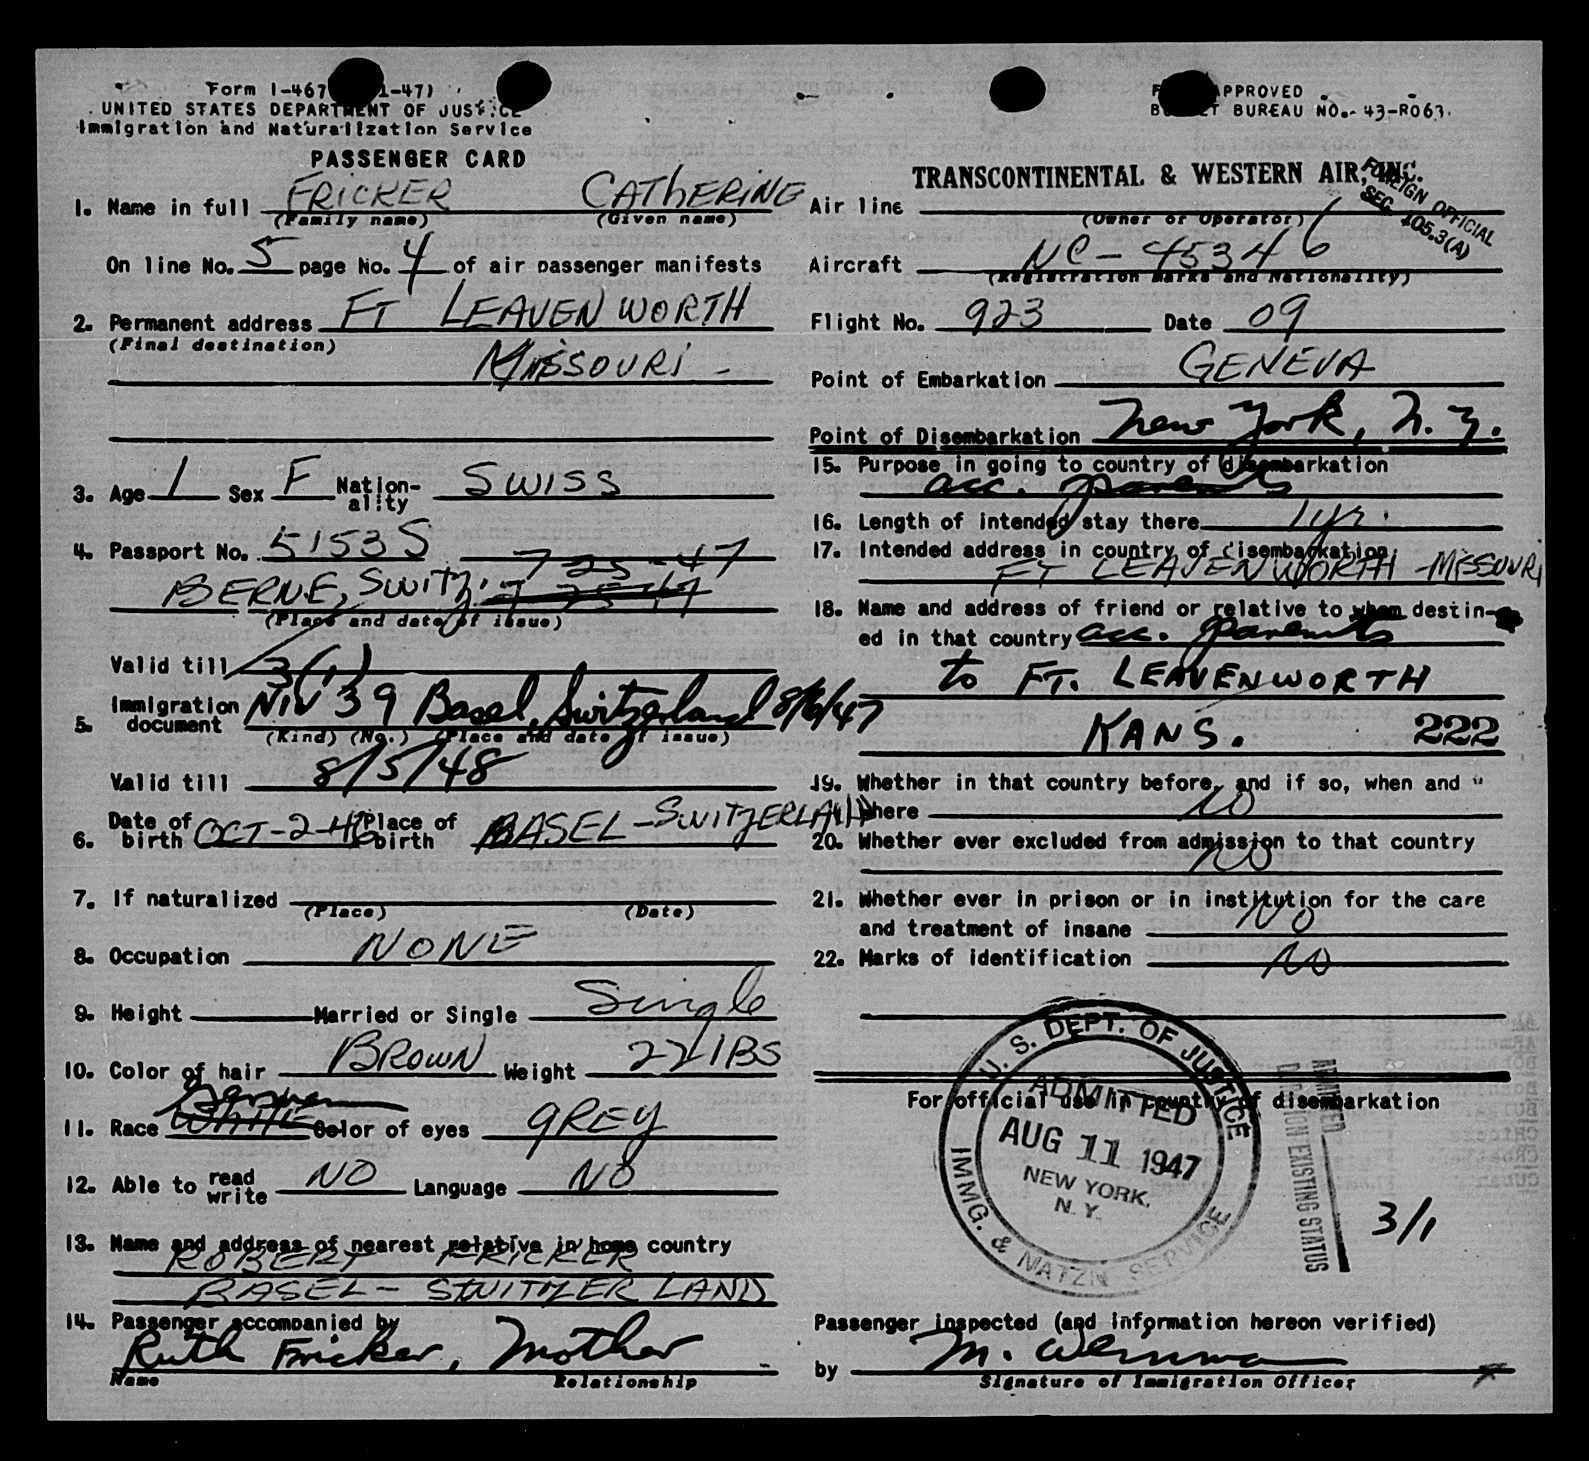 Form I-467 1-47)
UNITED STATES DEPARTMENT OF JUSTICE
Immigration and Naturalization Service
PASSENGER CARD
1. Name in full FRICKER CATHERINE
(Family name) (Given name)
On line No. 5 page No. 4 of air passenger manifests
2. Permanent address FT LEAVENWORTH
(Final destination)
MISSOURI -
3. Age 1 Sex F Nation-ality SWISS
4. Passport No. 51535 7-25-47
BERNE, SWITZ. 7 25 47
(Place and date of issue)
Valid till 3(1)
5. Immigration document NIV 39 Basel, Switzerland 8/6/47
(Kind) (No.) (Place and date of issue)
Valid till 8/5/48
6. Date of birth OCT-2-46 Place of birth BASEL-SWITZERLAND
7. If naturalized
(Place) (Date)
8. Occupation NONE
9. Height Married or Single Single
10. Color of hair BROWN Weight 22 LBS
German
11. Race WHITE Color of eyes GREY
12. Able to read write NO Language NO
13. Name and address of nearest relative in home country
ROBERT FRICKER
BASEL - SWITZERLAND
14. Passenger accompanied by
Ruth Fricker, Mother
Name Relationship
F APPROVED
B T BUREAU NO. 43-R063.
TRANSCONTINENTAL & WESTERN AIR, INC.
FOREIGN OFFICIAL
SEC. 105.3(A)
Air line
(Owner or Operator)
Aircraft NC-45346
(Registration Marks and Nationality)
Flight No. 923 Date 09
Point of Embarkation GENEVA
Point of Disembarkation New York, N.Y.
15. Purpose in going to country of disembarkation
acc. parents
16. Length of intended stay there 1 yr.
17. Intended address in country of disembarkation
FT LEAVENWORTH - MISSOURI
18. Name and address of friend or relative to whom destin-
ed in that country acc. parents
to FT. LEAVENWORTH
KANS. 222
19. Whether in that country before, and if so, when and
where NO
20. Whether ever excluded from admission to that country
NO
21. Whether ever in prison or in institution for the care
and treatment of insane NO
22. Marks of identification NO
For official use in country of disembarkation
U. S. DEPT. OF JUSTICE
ADMITTED
AUG 11 1947
NEW YORK,
N. Y.
IMMG. & NATZN SERVICE
ADMITTED
EXISTING STATUS
3/1
Passenger inspected (and information hereon verified)
by M.
Signature of Immigration Officer